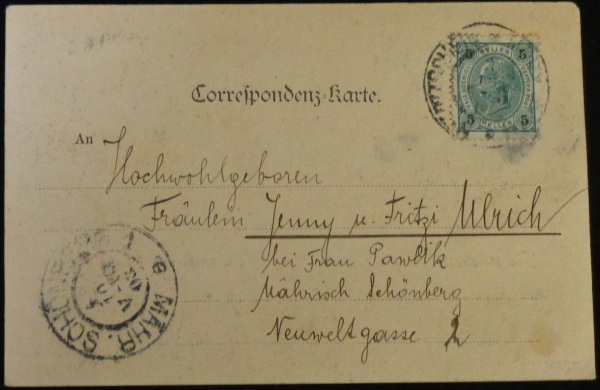 HELLER
5 5
5 5
HELLER
Correspondenz-Karte.
An
Hochwohlgeboren
Fräulein Jenny u. Fritzi Ulrich
bei Frau Pawlik
Mährisch Schönberg
Neuweltgasse 2
MÄHR. SCHÖNBERG